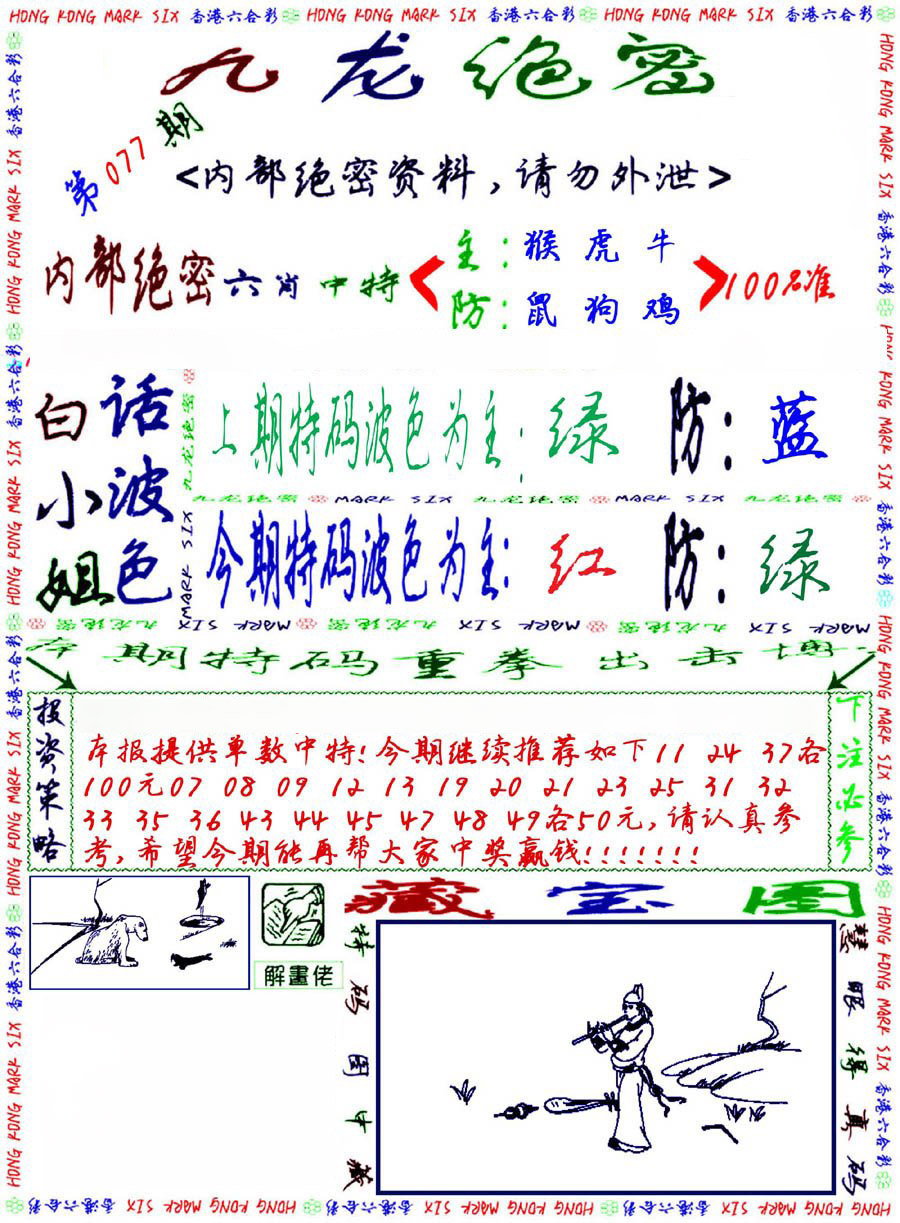 HONG KONG MARK SIX 香港六合彩 HONG KONG MARK SIX 香港六合彩 HONG KONG MARK SIX 香港六合彩
九龙绝密
第077期
<内部绝密资料,请勿外泄>
内部绝密六肖中特
主:猴虎牛
防:鼠狗鸡
100%准
白话小波姐色
上期特码波色为主:绿 防:蓝
九龙绝密 MARK SIX 九龙绝密 MARK SIX 九龙绝密
今期特码波色为主:红 防:绿
九龙绝密 MARK SIX 九龙绝密 MARK SIX 九龙绝密 MARK SIX
本期特码重拳出击博
投资策略
本报提供单数中特!今期继续推荐如下11 24 37各
100元07 08 09 12 13 19 20 21 23 25 31 32
33 35 36 43 44 45 47 48 49各50元,请认真参
考,希望今期能再帮大家中奖赢钱!!!!!!!
下注必参
解畫佬
藏宝图
特码图中藏
慧眼得真码
HONG KONG MARK SIX 香港六合彩 HONG KONG MARK SIX 香港六合彩 HONG KONG MARK SIX 香港六合彩